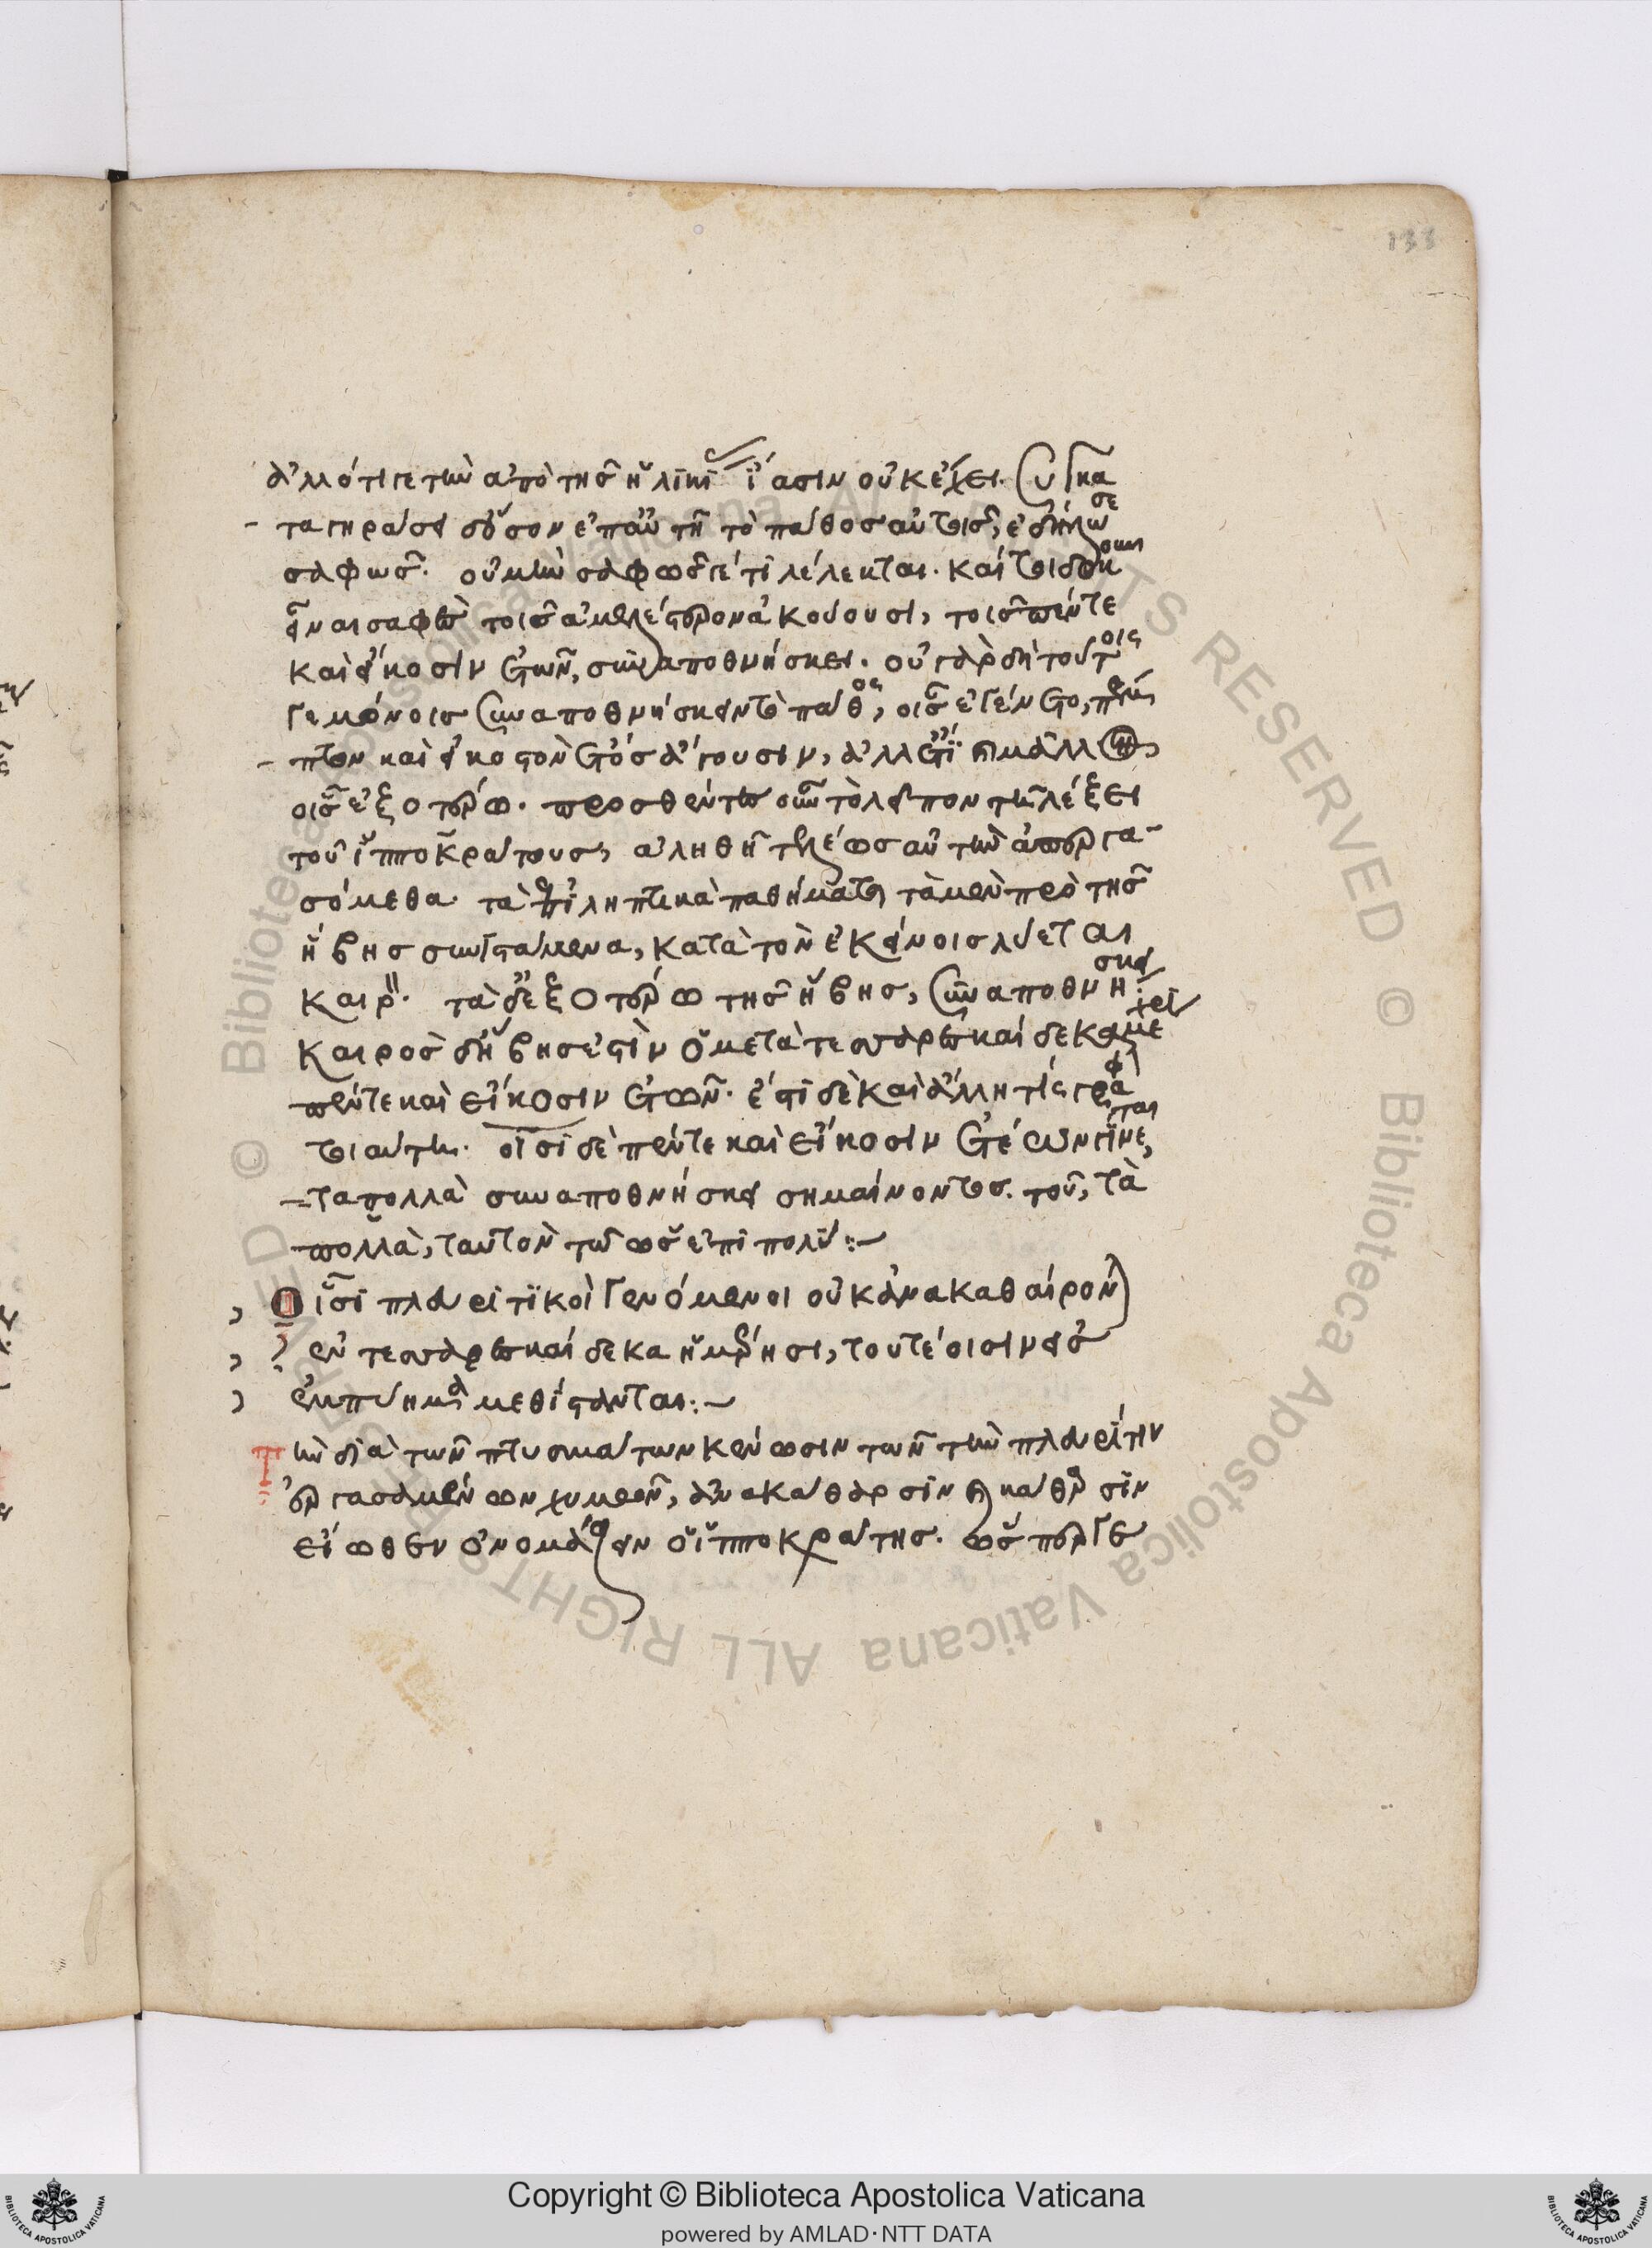 133
ἀλλ' ὅτι γε τὴν ἀπὸ τῆς ἡλικίας ἴασιν οὐκ ἔχει. συγκα
ταγηράσει
τὸ πάθος αὐτοῖς, ἐδήλωσε
σαφῶς. οὐ μὴν σαφῶς γέ τι λέλεκται. καίτοι δοκοῦν
εἶναι σαφὲς τοῖς ἀμελέστερον ἀκούουσι, τοῖς πέντε
καὶ εἴκοσιν ἐτῶν, συναποθνήσκει. οὐ γὰρ δὴ τούτοις
γε μόνοις συναποθνήσκειν τὸ πάθος, οἷς ἐγένετο, πέμ
πτον καὶ εἰκοστὸν ἔτος ἄγουσιν, ἀλλ' ἔτι καὶ μᾶλλον,
οἷς ἐξωτέρω. προσθέντες οὖν τὸ λεῖπον τῇ λέξει
τοῦ ἱπποκράτους, ἀληθῆ τελέως αὐτὴν ἀπεργα
σόμεθα. τὰ ἐπιληπτικὰ παθήματα τὰ μὲν πρὸ τῆς
ἥβης συνιστάμενα, κατὰ τὸν ἐκείνοις λύεται
καιρόν. τὰ δὲ ἐξωτέρω τῆς ἥβης, συναποθνήσκει.
καιρὸς δ' ἥβης ἐστὶν ὁ μετὰ τεσσαρεσκαίδεκα μέχρι
πέντε καὶ εἴκοσιν ἐτῶν. ἔστι δὲ καὶ ἄλλη τις γραφὴ
τοιαύτη. οἷσι δὲ πέντε καὶ εἴκοσιν ἐτέων γίνεται,
τὰ πολλὰ συναποθνήσκει σημαίνοντος τοῦ, τὰ
πολλὰ, ταὐτὸν τῷ ὡς ἐπὶ πολύ:–
Οἷσι πλευριτικοὶ γενόμενοι οὐκ ἀνακαθαίρονται
ἐν τεσσαρεσκαίδεκα ἡμέρῃσι, τουτέοισιν ἐς
ἐμπύημα μεθίσταται:–
Τὴν διὰ τῶν πτυσμάτων κένωσιν τῶν τὴν πλευρίτιν
ἐργασαμένων χυμῶν, ἀνακάθαρσιν καὶ κάθαρσιν
εἴωθεν ὀνομάζειν ὁ ἱπποκράτης. ὥσπερ γε
Copyright © Biblioteca Apostolica Vaticana
powered by AMLAD·NTT DATA